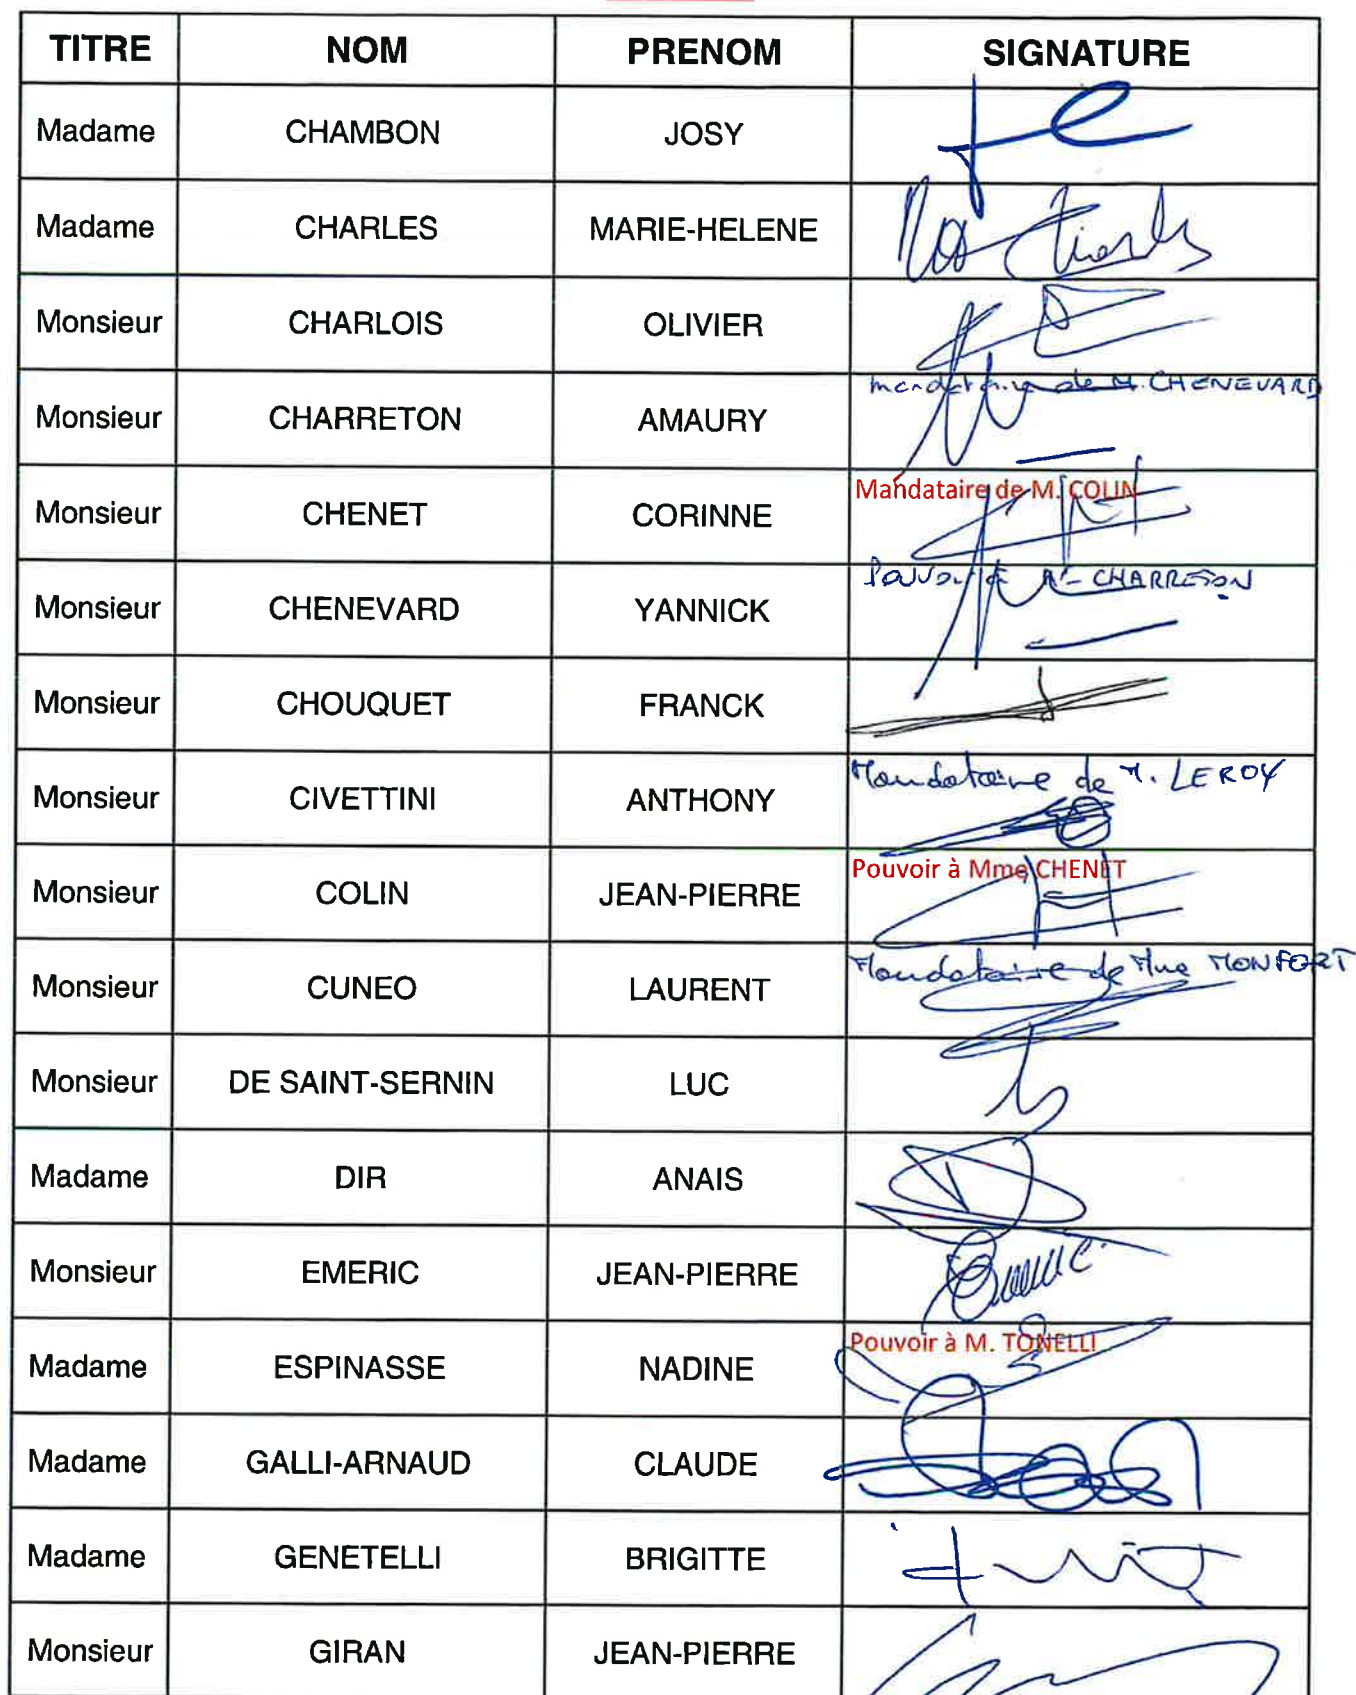 TITRE NOM PRENOM SIGNATURE
Madame CHAMBON JOSY
Madame CHARLES MARIE-HELENE Charles
Monsieur CHARLOIS OLIVIER
Monsieur CHARRETON AMAURY mandataire de M. CHENEVARD
Monsieur CHENET CORINNE Mandataire de M. COLIN
Monsieur CHENEVARD YANNICK Pouvoir à M. CHARRETON
Monsieur CHOUQUET FRANCK
Monsieur CIVETTINI ANTHONY Mandataire de M. LEROY
Monsieur COLIN JEAN-PIERRE Pouvoir à Mme CHENET
Monsieur CUNEO LAURENT Mandataire de Mme MONFORT
Monsieur DE SAINT-SERNIN LUC
Madame DIR ANAIS
Monsieur EMERIC JEAN-PIERRE Emeric
Madame ESPINASSE NADINE Pouvoir à M. TONELLI
Madame GALLI-ARNAUD CLAUDE
Madame GENETELLI BRIGITTE
Monsieur GIRAN JEAN-PIERRE